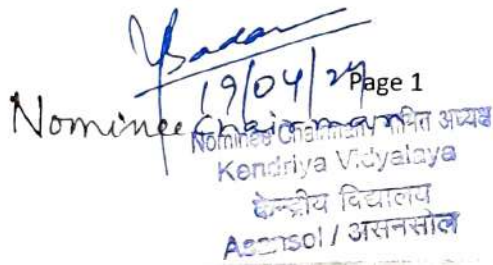 19/04/24
Page 1
Nominee Chairman
Nominee Chairman / नामित अध्यक्ष
Kendriya Vidyalaya
केन्द्रीय विद्यालय
Asansol / असनसोल